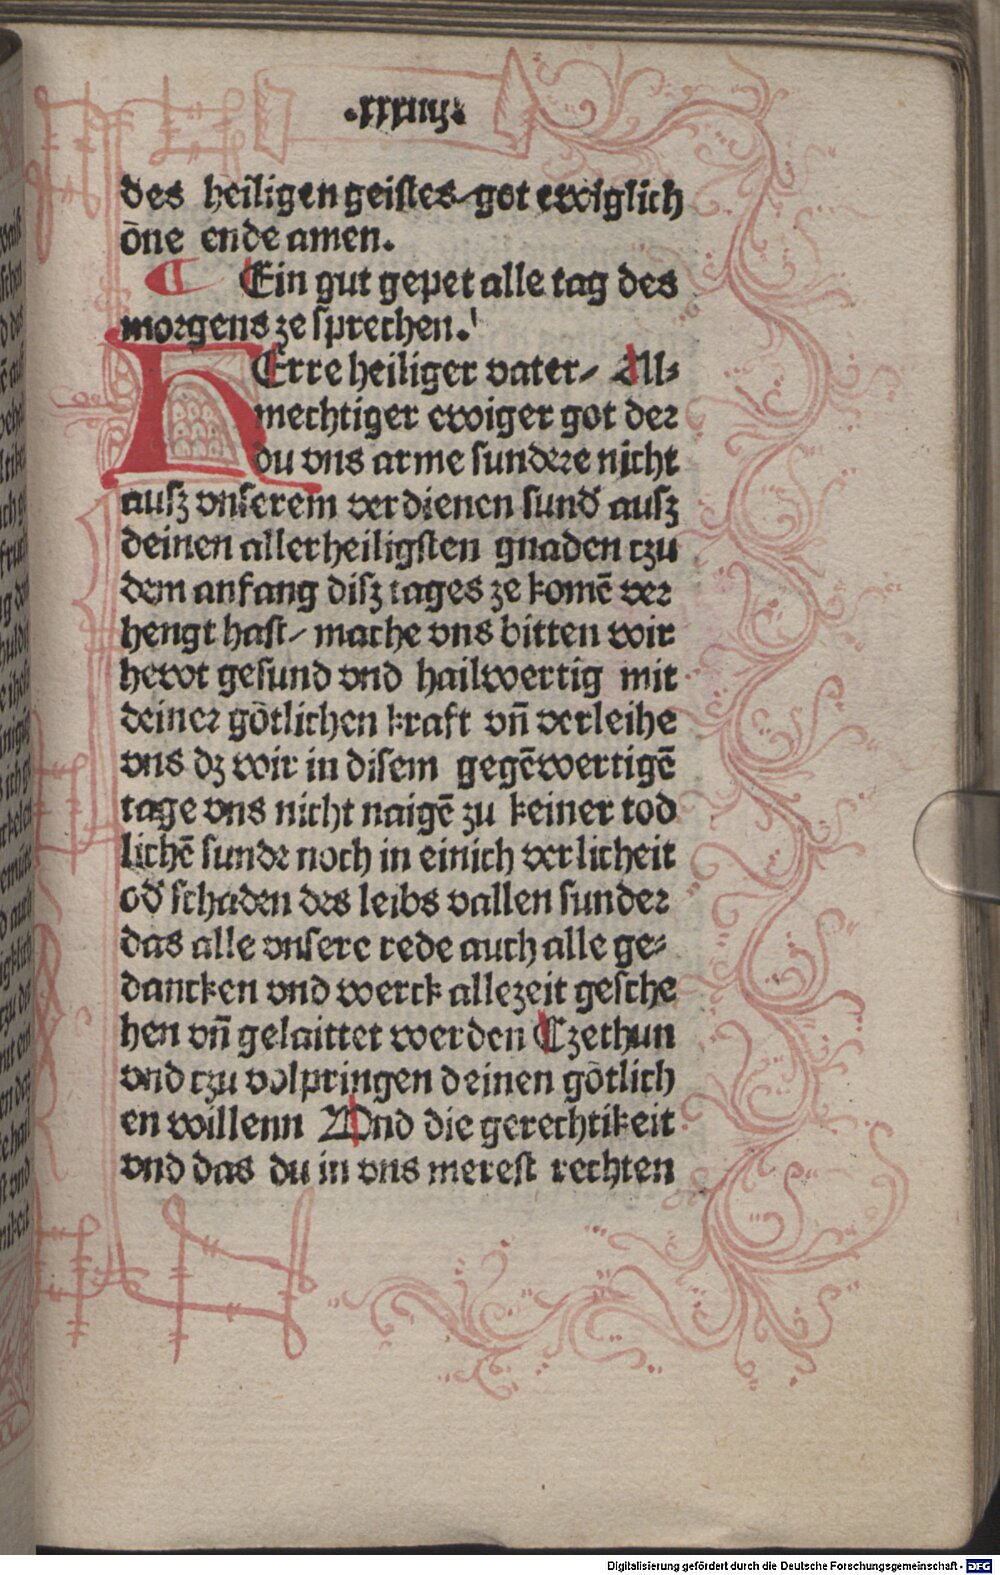 .xxxiiij.
des heiligen geistes/got ewiglich
ōne ende amen.
¶ Ein gut gepet alle tag des
morgens ze sprechen.
HErre heiliger vater/ All⸗
mechtiger ewiger got der
du vns arme sundere nicht
ausz vnserem verdienen sund̕ ausz
deinen allerheiligsten gnaden czu
dem anfang disz tages ze komē ver
hengt hast/ mache vns bitten wir
hewt gesund vnd hailwertig mit
deiner gōtlichen kraft vn̄ verleihe
vns dz wir in disem gegēwertigē
tage vns nicht naigē zu keiner tod
lichē sunde noch in einich verlicheit
od̕ schaden des leibs vallen sunder
das alle vnsere rede auch alle ge⸗
dancken vnd werck allezeit gesche
hen vn̄ gelaittet werden Czethun
vnd czu volpringen deinen gōtlich
en willenn Vnd die gerechtikeit
vnd das du in vns merest rechten
Digitalisierung gefördert durch die Deutsche Forschungsgemeinschaft - DFG